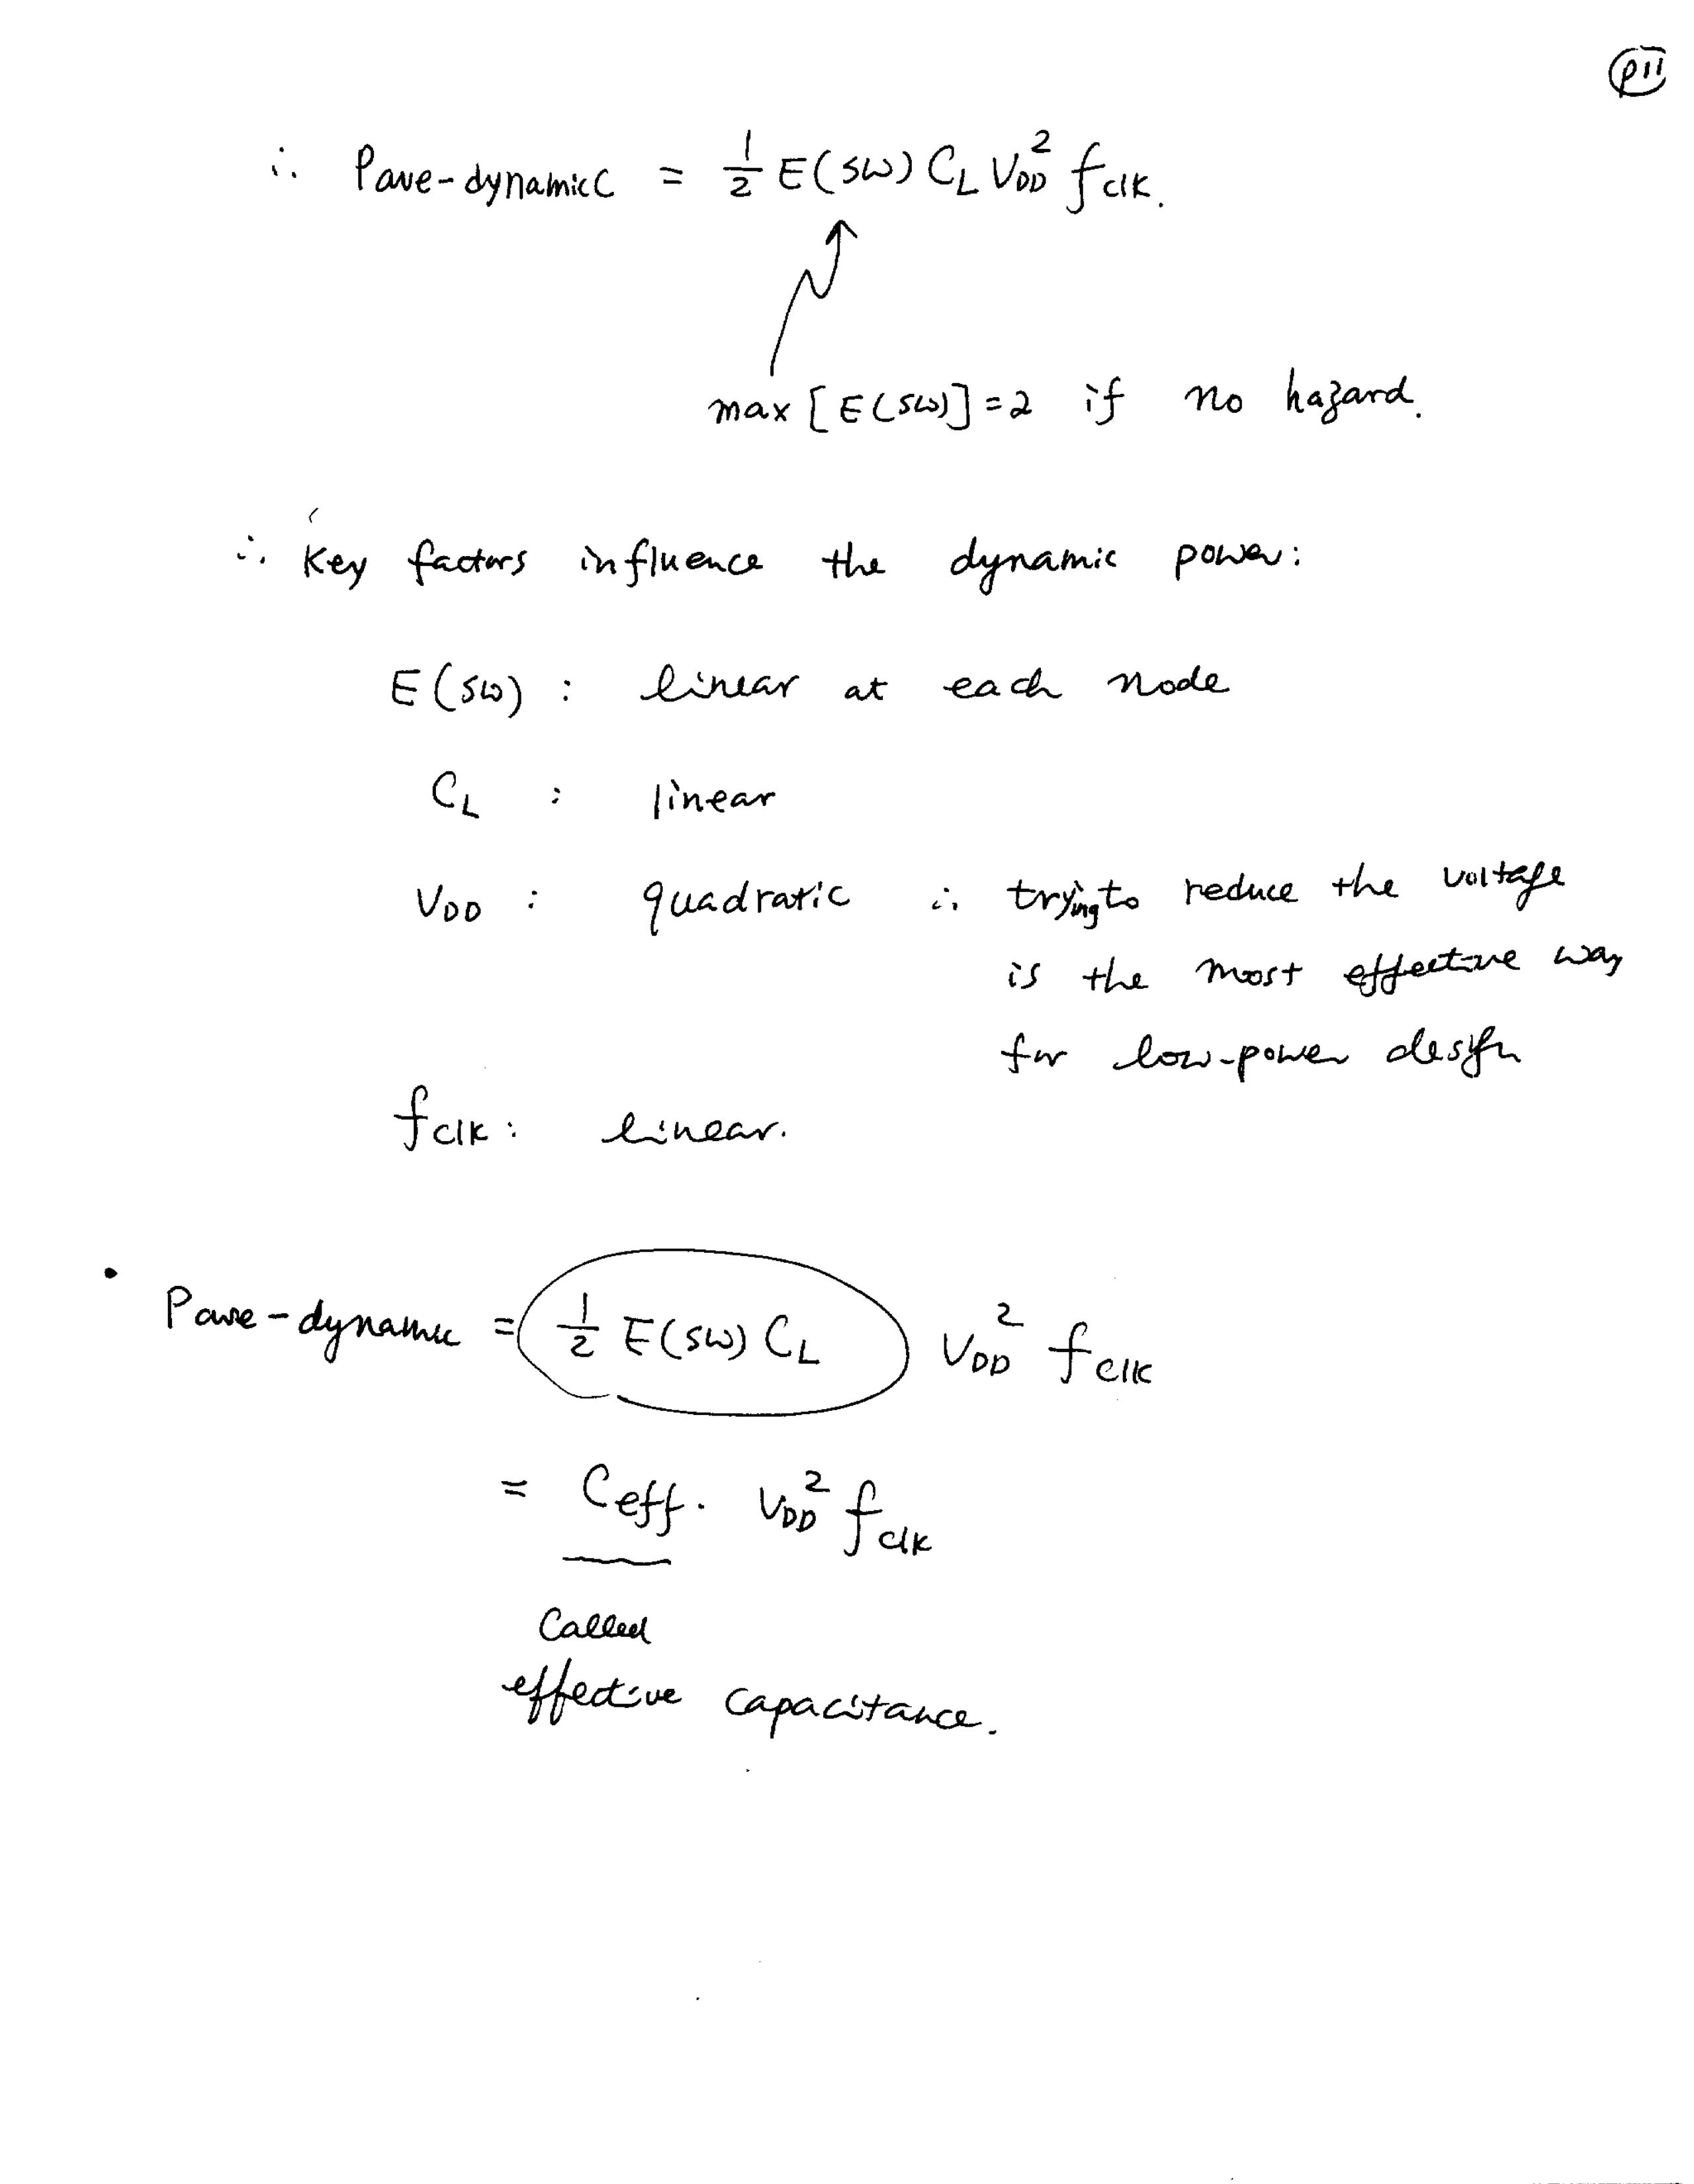 p11
∴ Pave-dynamicC = 1/2 E(SW) CL VDD² fclk.
max [E(SW)] = 2 if no hazard.
∴ Key factors influence the dynamic power:
E(SW) : linear at each node
CL : linear
VDD : quadratic ∴ trying to reduce the voltage
is the most effective way
for low-power design
fclk : linear.
• Pave-dynamic = 1/2 E(SW) CL VDD² fclk
= Ceff · VDD² fclk
Called
effective capacitance.